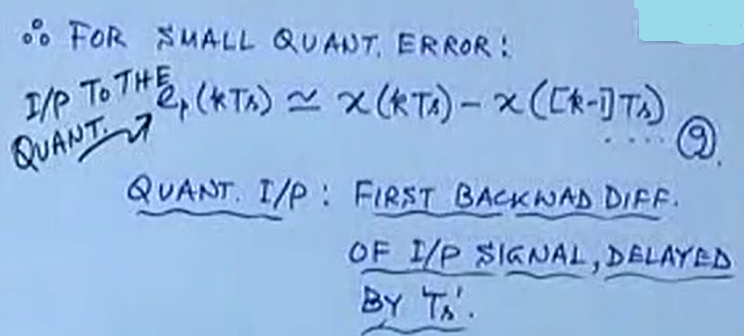 ∴ FOR SMALL QUANT. ERROR:
I/P TO THE QUANT.
eₚ(kTₛ) ≃ x(kTₛ) - x([k-1]Tₛ)
.... ⑨.
QUANT. I/P: FIRST BACKWAD DIFF.
OF I/P SIGNAL, DELAYED
BY 'Tₛ'.